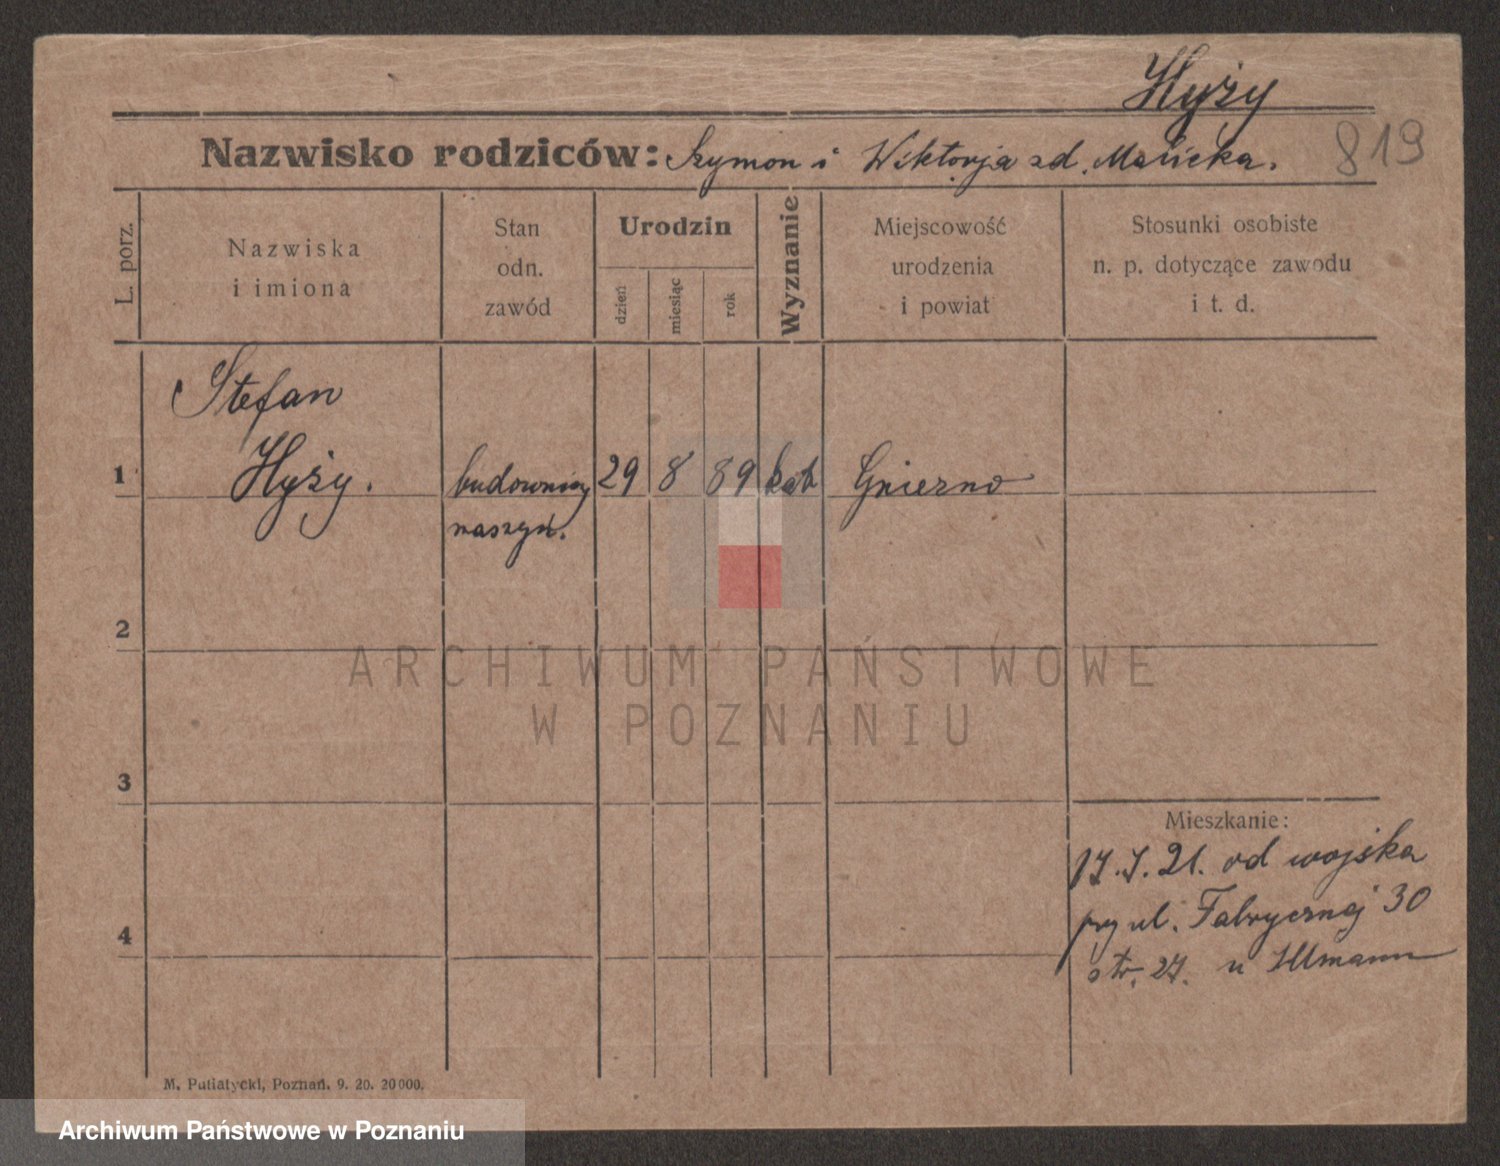 Hyży
819
Nazwisko rodziców: Szymon i Wiktorja zd. Malicka.
L. porz.
Nazwiska
i imiona
Stan
odn.
zawód
Urodzin
dzień
miesiąc
rok
Wyznanie
Miejscowość
urodzenia
i powiat
Stosunki osobiste
n. p. dotyczące zawodu
i t. d.
Stefan
1 Hyży. budowniczy 29 8 89 kat Gniezno
maszyn.
2
3
4
Mieszkanie:
17.7.21. od wojska
przy ul. Fabrycznej 30
str. 27. u Illmann
M. Putiatycki, Poznań. 9. 20. 20000.
ARCHIWUM PAŃSTWOWE
W POZNANIU
Archiwum Państwowe w Poznaniu